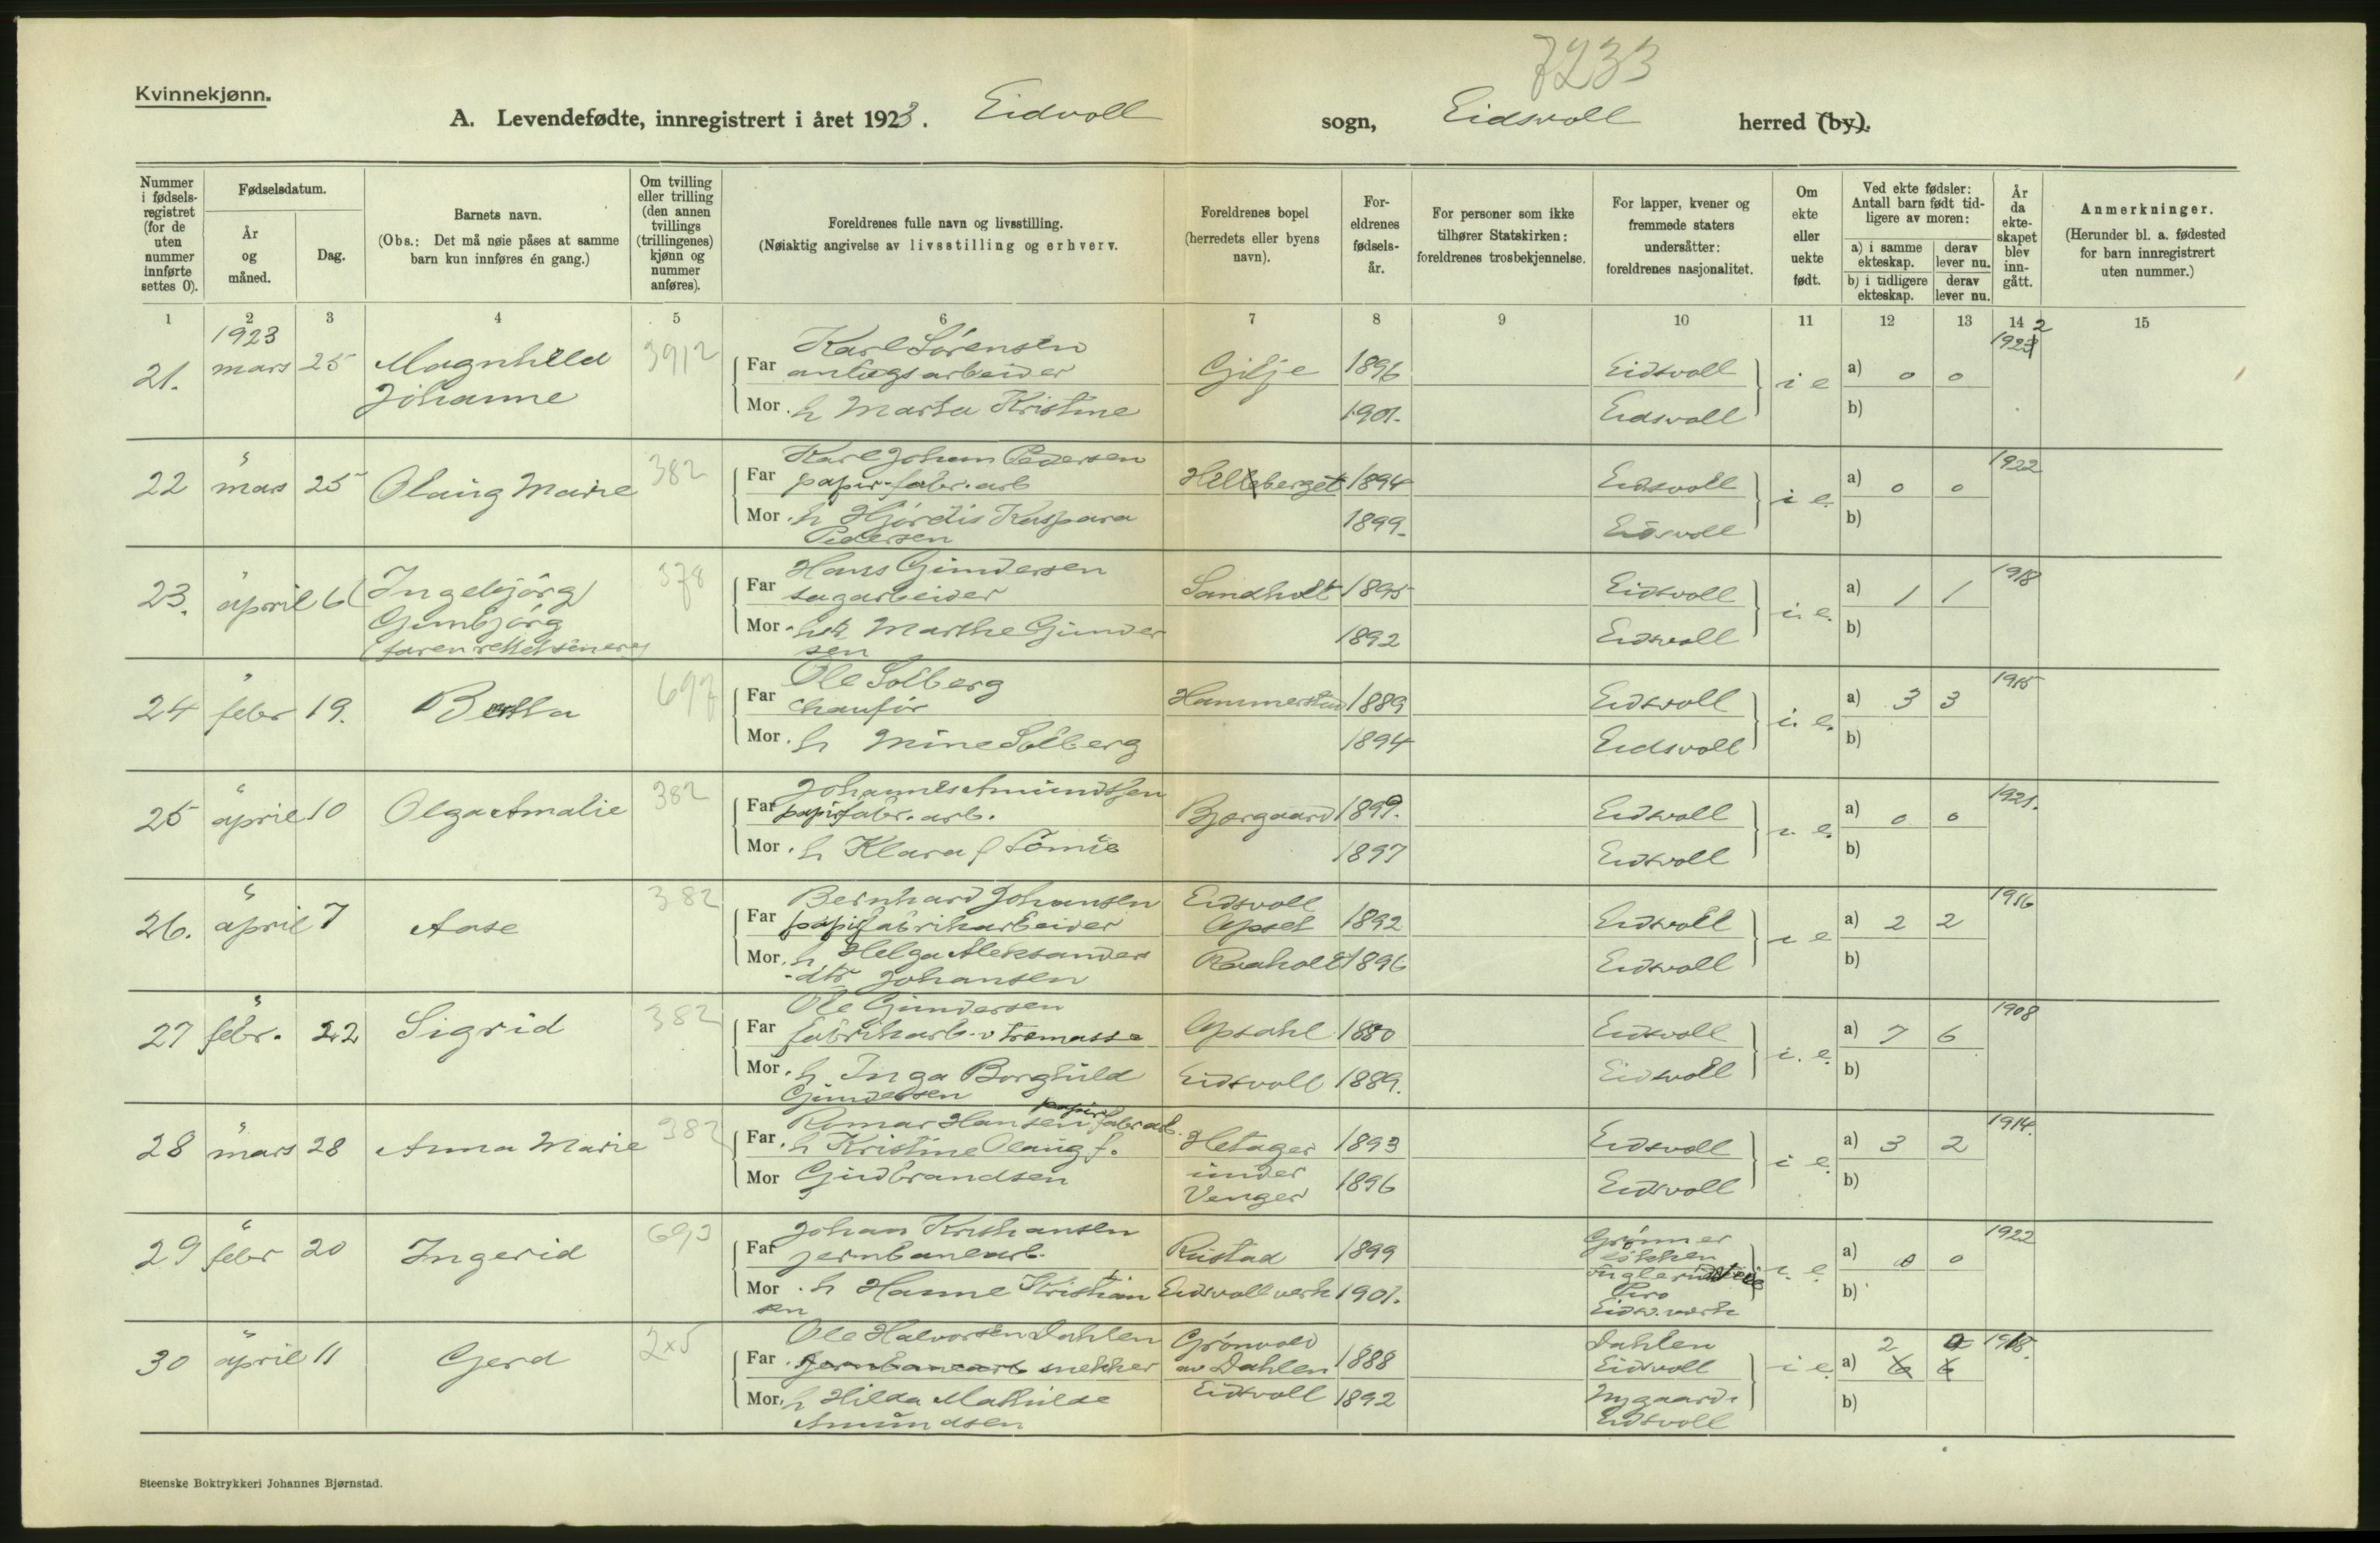 7233
Kvinnekjønn.
A. Levendefødte, innregistrert i året 1923. Eidvoll sogn, Eidsvoll herred (by).
Nummer i fødsels-registret (for de uten nummer innførte settes 0).
Fødselsdatum.
År og måned.
Dag.
Barnets navn.
(Obs.: Det må nøie påses at samme barn kun innføres én gang.)
Om tvilling eller trilling (den annen tvillings (trillingenes) kjønn og nummer anføres).
Foreldrenes fulle navn og livsstilling.
(Nøiaktig angivelse av livsstilling og erhverv.
Foreldrenes bopel (herredets eller byens navn).
For-eldrenes fødsels-år.
For personer som ikke tilhører Statskirken: foreldrenes trosbekjennelse.
For lapper, kvener og fremmede staters undersåtter: foreldrenes nasjonalitet.
Om ekte eller uekte født.
Ved ekte fødsler: Antall barn født tid-ligere av moren:
a) i samme ekteskap.
derav lever nu.
b) i tidligere ekteskap.
derav lever nu.
År da ekte-skapet blev inn-gått.
Anmerkninger.
(Herunder bl. a. fødested for barn innregistrert uten nummer.)
1 2 3 4 5 6 7 8 9 10 11 12 13 14 15
1923
21. mars 25 Magnhild Johanne 3912
Far Karl Sørensen anlægsarbeider Gilje 1896 Eidsvoll i e a) 0 0 1922
Mor h Marta Kristine 1901. Eidsvoll b)
22 " mars 25 Olaug Marie 382
Far Karl Johan Pedersen papir-fabr. arb Helleberget 1894 Eidsvoll i e. a) 0 0 1922
Mor h Hjørdis Kaspara Pedersen 1899. Eidsvoll b)
23. " april 6 (Ingebjørg) Gunbjørg 378
Far Hans Gundersen sagarbeider Sandholt 1895 Eidsvoll i. e. a) 1 1 1918
Mor Marthe Gundersen 1892 Eidsvoll b)
24 " febr 19. Berta 697
Far Ole Solberg chaufør 1889 Eidsvoll i. e. a) 3 3 1915
Mor h Mine Solberg 1894 Eidsvoll b)
25 " april 10 Olga Amalie 382
Far Johannes Amundsen papirfabr. arb. Bjørgaard 1899. Eidsvoll i e. a) 0 0 1921.
Mor h Klara f 1897 Eidsvoll b)
26. " april 7 Aase 382
Far Bernhard Johansen papirfabrikarbeider Eidsvoll 1892 Eidsvoll i e a) 2 2 1916
Mor h Helga Aleksanders-dtr Johansen Raaholt 1896 Eidsvoll b)
27 " febr. 22 Sigrid 382
Far Ole Gundersen fabrikarb. v tremasse Opsahl 1880 Eidsvoll i. e. a) 7 6 1908
Mor h Inga Borghild Gundersen Eidsvoll 1889. Eidsvoll b)
28 " mars 28 Anna Marie 382
Far Romar Hansen papirfabr arb. Hetager under Venger 1893 Eidsvoll i e. a) 3 2 1914.
Mor h Kristine Olaug f. Gudbrandsen 1896 Eidsvoll b)
29 " febr 20 Ingerid 693
Far Johan Kristiansen jernbanearb. Rustad 1899 i. e. a) 0 0 1922
Mor h Hanne Kristiansen Eidsvoll verk 1901. Eidsv. verk b)
30 " april 11 Gerd 2x5
Far Ole Halvorsen Dahlen jernbanearb snekker Grønvold av Dahlen 1888 Dahlen Eidsvoll i e. a) 2 1918.
Mor h Hilda Mathilde Amundsen Eidsvoll 1892 Nygaard. Eidsvoll b)
Steenske Boktrykkeri Johannes Bjørnstad.